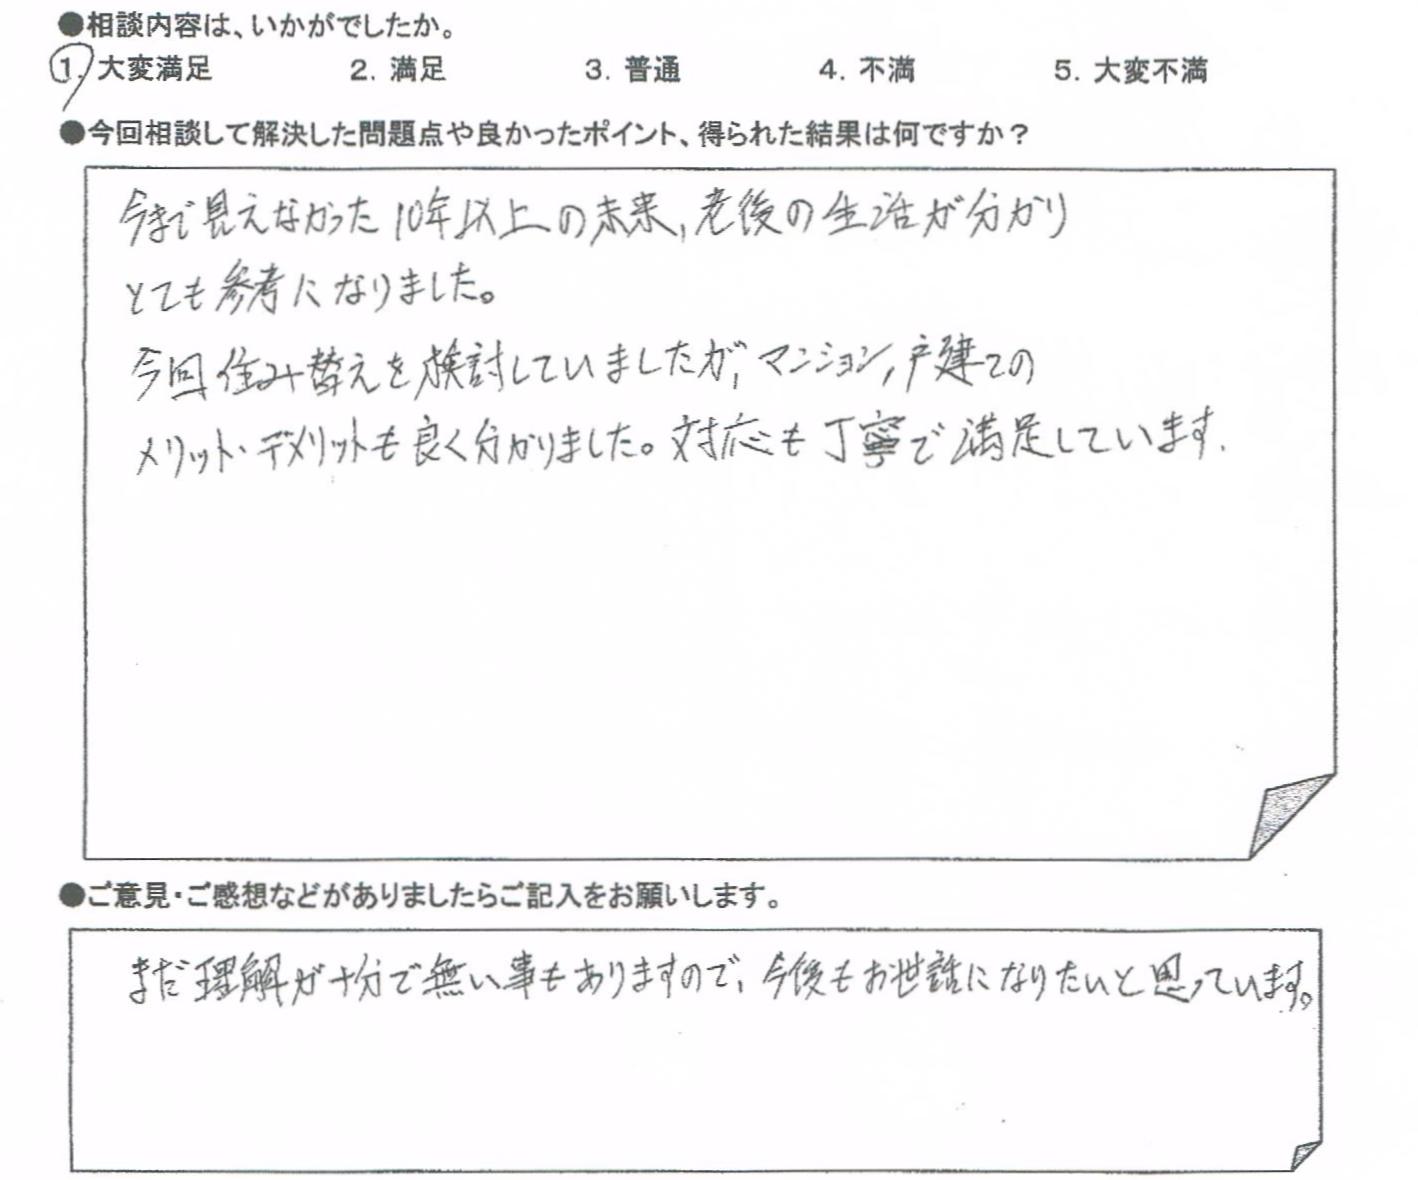 ●相談内容は、いかがでしたか。
1. 大変満足 2. 満足 3. 普通 4. 不満 5. 大変不満
●今回相談して解決した問題点や良かったポイント、得られた結果は何ですか？
今まで見えなかった10年以上の未来、老後の生活が分かり
とても参考になりました。
今回住み替えを検討していましたが、マンション、戸建ての
メリット・デメリットも良く分かりました。対応も丁寧で満足しています.
●ご意見・ご感想などがありましたらご記入をお願いします。
まだ理解が十分で無い事もありますので、今後もお世話になりたいと思っています。